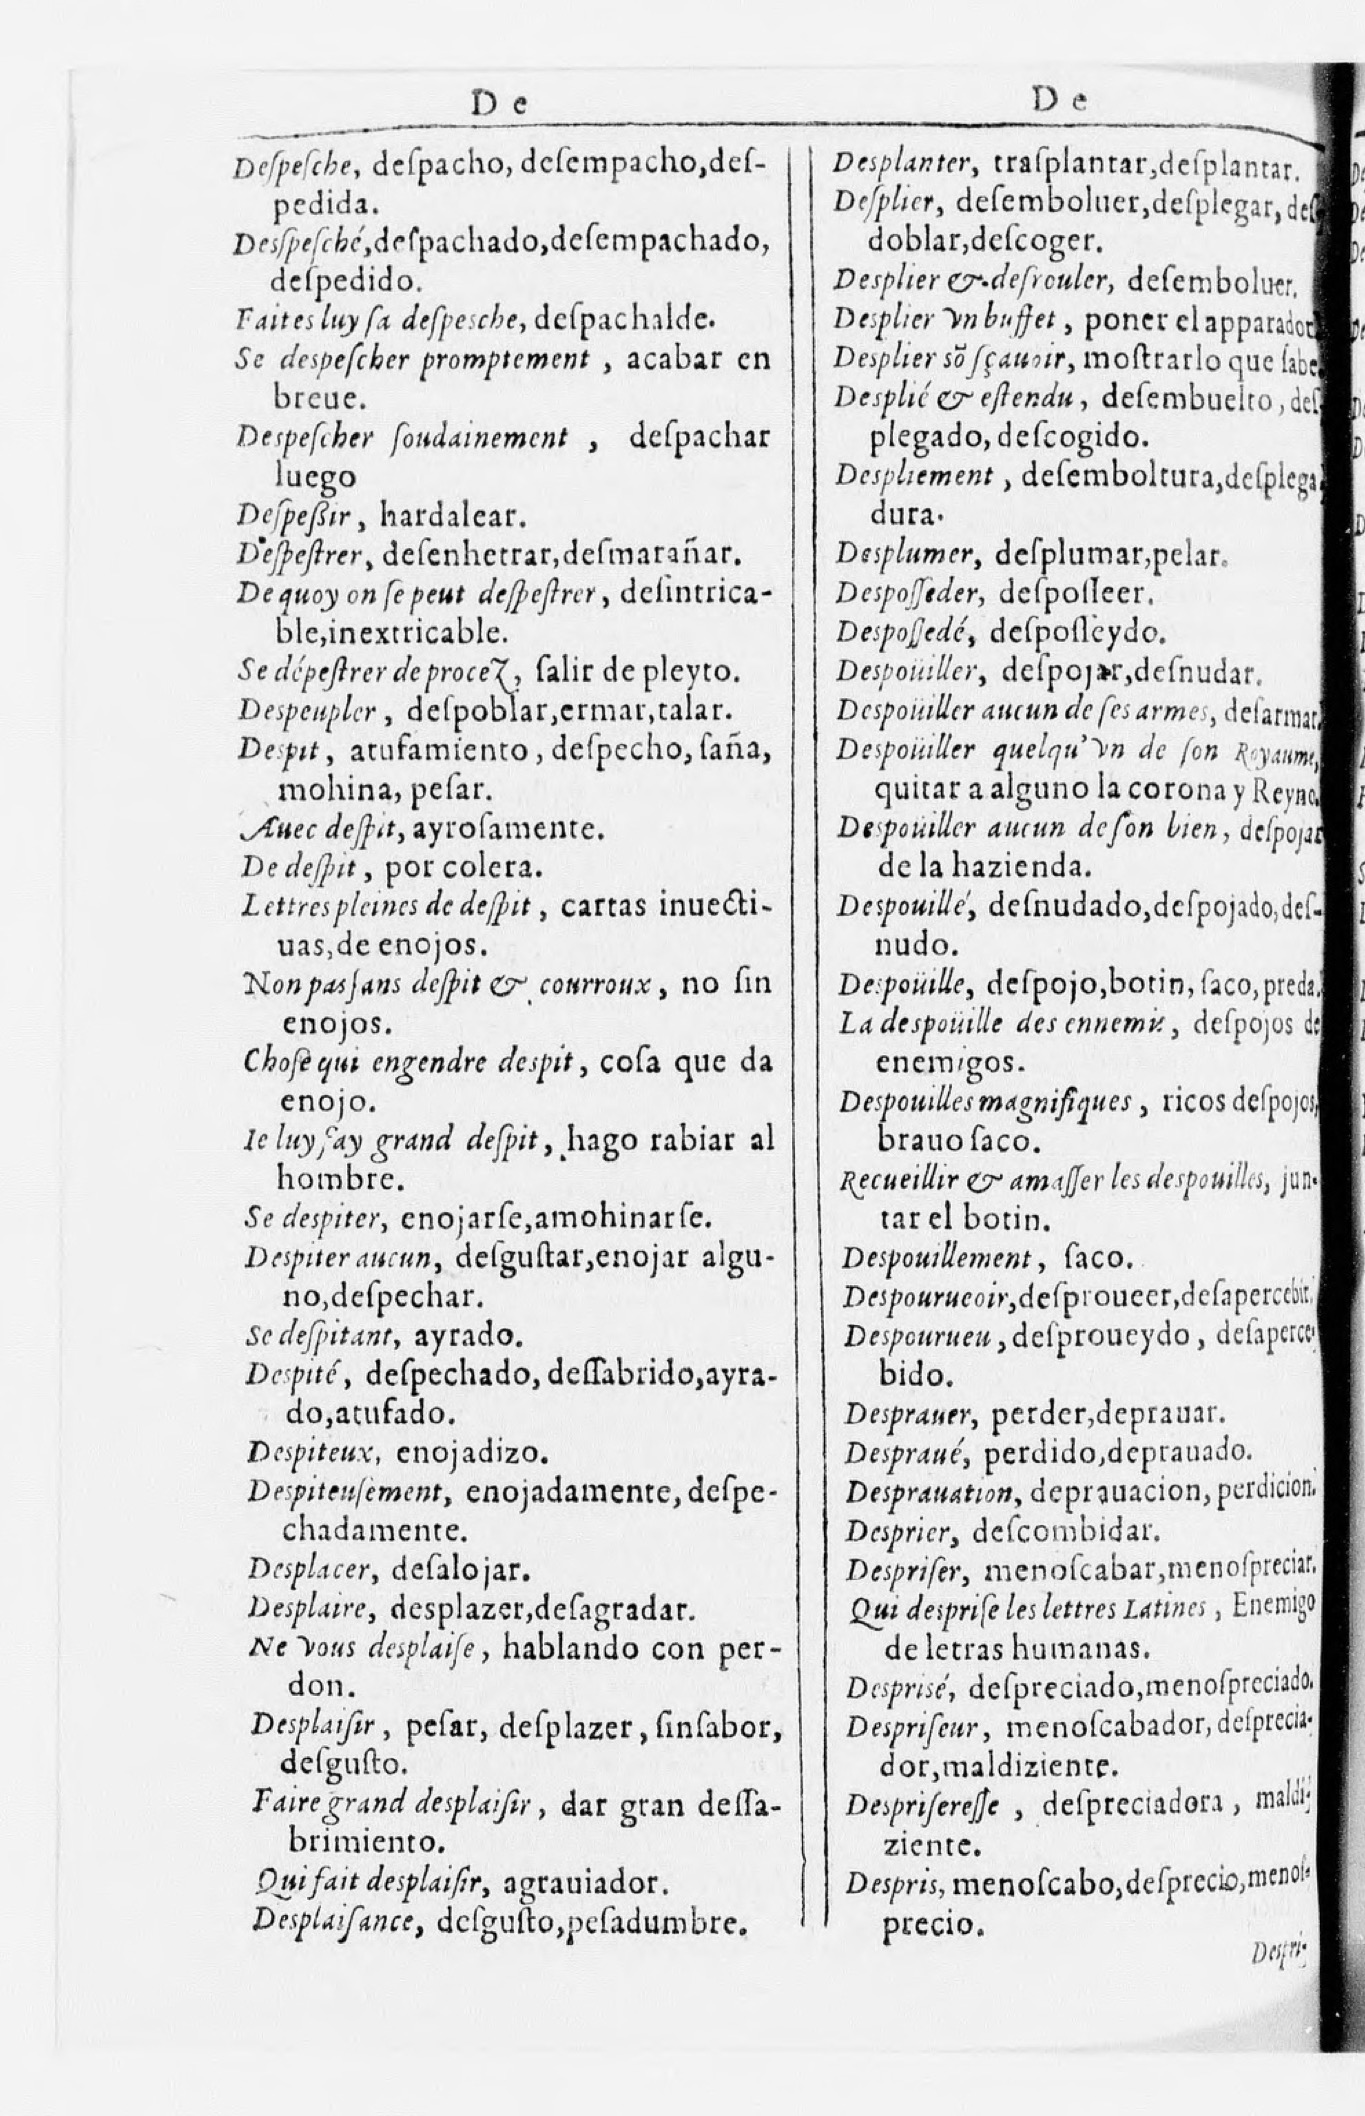 De
Deſpeſche, deſpacho, deſempacho,deſ-
pedida.
Desſpeſché,deſpachado,deſempachado,
deſpedido.
Faites luy ſa deſpesche, deſpachalde.
Se despeſcher promptement , acabar en
breue.
Despeſcher ſoudainement , deſpachar
luego
Deſpeßir, hardalear.
Deſpeſtrer, deſenhetrar,deſmarañar.
De quoy on ſe peut deſpeſtrer, deſintrica-
ble,inextricable.
Se dépeſtrer de procez, ſalir de pleyto.
Despeupler , deſpoblar,ermar,talar.
Despit, atufamiento, deſpecho, ſaña,
mohina, peſar.
Auec deſpit, ayroſamente.
De deſpit, por colera.
Lettres pleines de deſpit, cartas inuecti-
uas,de enojos.
Non pas ſans deſpit & courroux, no ſin
enojos.
Choſe qui engendre despit, coſa que da
enojo.
Ie luy fay grand deſpit, hago rabiar al
hombre.
Se despiter, enojarſe,amohinarſe.
Despiter aucun, deſguſtar,enojar algu-
no,deſpechar.
Se deſpitant, ayrado.
Despité, deſpechado, deſſabrido,ayra-
do,atufado.
Despiteux, enojadizo.
Despiteuſement, enojadamente, deſpe-
chadamente.
Desplacer, deſalojar.
Desplaire, desplazer,deſagradar.
Ne vous desplaiſe, hablando con per-
don.
Desplaiſir, peſar, deſplazer, ſinſabor,
deſguſto.
Faire grand desplaiſir, dar gran deſſa-
brimiento.
Qui fait desplaiſir, agrauiador.
Desplaiſance, deſguſto,peſadumbre.
De
Desplanter, traſplantar,deſplantar.
Deſplier, deſemboluer,deſplegar, deſ-
doblar,deſcoger.
Desplier & deſrouler, deſemboluer.
Desplier vn buffet, poner el apparador
Desplier sõ ſçauoir, moſtrar lo que ſabe
Desplié & eſtendu, deſembuelto, deſ
plegado, deſcogido.
Despliement, deſemboltura,deſplega
dura.
Desplumer, deſplumar,pelar.
Despoſſeder, deſpoſſeer.
Despoſſedé, deſpoſſeydo.
Despoüiller, deſpojar,deſnudar.
Despoüiller aucun de ſes armes, deſarmar
Despoüiller quelqu'vn de ſon Royaume,
quitar a alguno la corona y Reyno.
Despoüiller aucun de ſon bien, deſpojar
de la hazienda.
Despouillé, deſnudado,deſpojado,deſ-
nudo.
Despoüille, deſpojo,botin, ſaco,preda.
La despoüille des ennemis, deſpojos de
enemigos.
Despouilles magnifiques, ricos deſpojos,
brauo ſaco.
Recueillir & amaſſer les despouilles, jun-
tar el botin.
Despouillement, ſaco.
Despourueoir,deſproueer,deſapercebir.
Despourueu, deſproueydo, deſaperce-
bido.
Desprauer, perder,deprauar.
Despraué, perdido,deprauado.
Desprauation, deprauacion, perdicion.
Desprier, deſcombidar.
Despriſer, menoſcabar,menoſpreciar.
Qui despriſe les lettres Latines, Enemigo
de letras humanas.
Desprisé, deſpreciado,menoſpreciado.
Despriſeur, menoſcabador, deſprecia-
dor,maldiziente.
Despriſereſſe, deſpreciadora, maldi-
ziente.
Despris, menoſcabo,deſprecio,menoſ-
precio.
Deſpri-